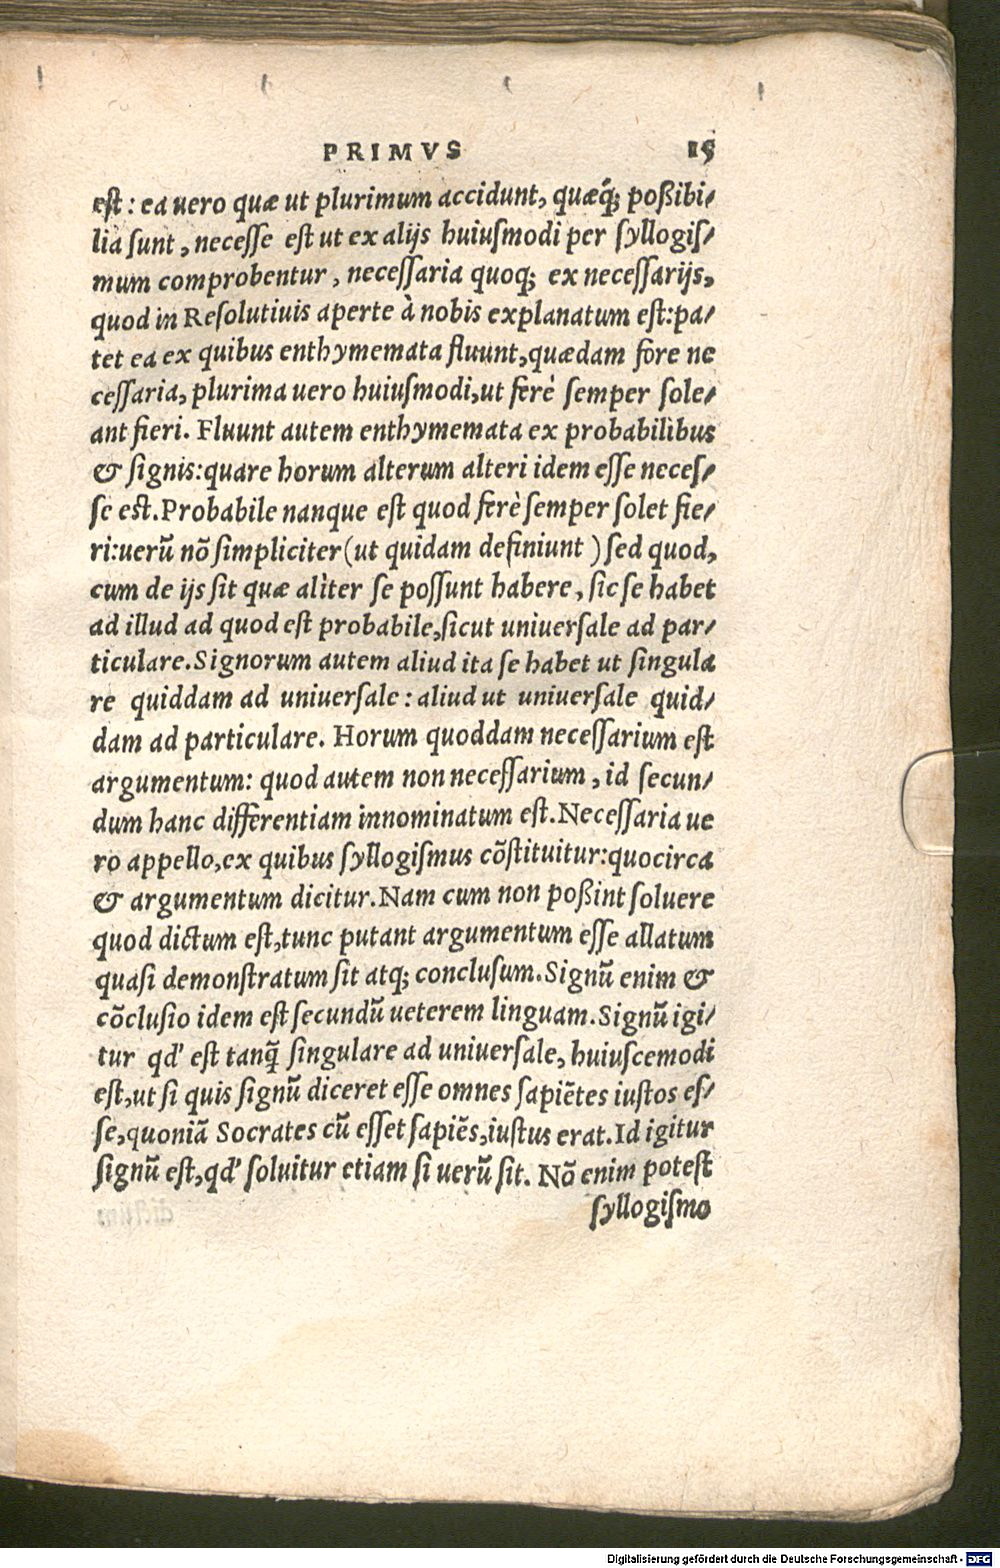 PRIMVS 15
est: ea uero quæ ut plurimum accidunt, quæq́; poßibi/
lia sunt, necesse est ut ex alijs huiusmodi per syllogis/
mum comprobentur, necessaria quoq; ex necessarijs,
quod in Resolutiuis aperte à nobis explanatum est: pa/
tet ea ex quibus enthymemata fluunt, quædam fore ne
cessaria, plurima uero huiusmodi, ut ferè semper sole/
ant fieri. Fluunt autem enthymemata ex probabilibus
& signis: quare horum alterum alteri idem esse neces/
se est. Probabile nanque est quod ferè semper solet fie/
ri: uerũ nõ simpliciter (ut quidam definiunt) sed quod,
cum de ijs sit quæ alìter se possunt habere, sic se habet
ad illud ad quod est probabile, sicut uniuersale ad par/
ticulare. Signorum autem aliud ita se habet ut singula
re quiddam ad uniuersale: aliud ut uniuersale quid/
dam ad particulare. Horum quoddam necessarium est
argumentum: quod autem non necessarium, id secun/
dum hanc differentiam innominatum est. Necessaria ue
ro appello, ex quibus syllogismus cõstituitur: quocirca
& argumentum dicitur. Nam cum non poßint soluere
quod dictum est, tunc putant argumentum esse allatum
quasi demonstratum sit atq; conclusum. Signũ enim &
cõclusio idem est secundũ ueterem linguam. Signũ igi/
tur qd' est tanq̃ singulare ad uniuersale, huiuscemodi
est, ut si quis signũ diceret esse omnes sapiẽtes iustos es/
se, quoniã Socrates cũ esset sapiẽs, iustus erat. Id igitur
signũ est, qd' soluitur etiam si uerũ sit. Nõ enim potest
syllogismo
Digitalisierung gefördert durch die Deutsche Forschungsgemeinschaft - DFG